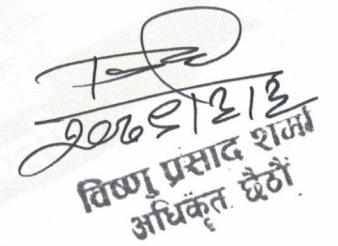 २०७९।३।३
विष्णु प्रसाद शर्मा
अधिकृत छैठौं